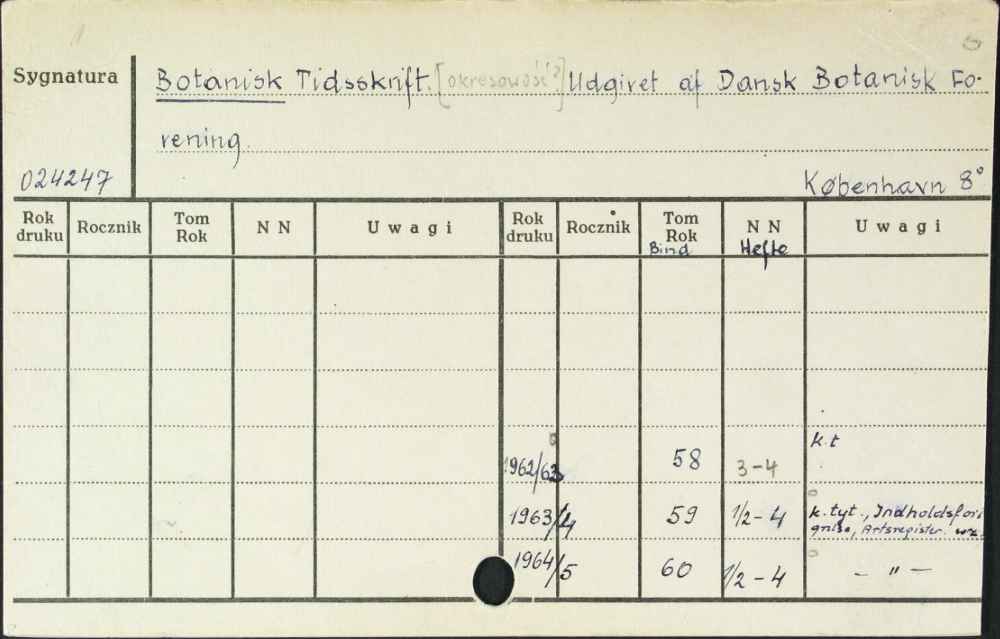 Sygnatura Botanisk Tidsskrift. [okresowość?] Udgivet af Dansk Botanisk Fo-
rening.
024247 København 8°
Rok druku Rocznik Tom Rok N N Uwagi Rok druku Rocznik Tom Rok Bind N N Hefte Uwagi
1962/63 58 3-4 k.t
1963/4 59 1/2-4 k.tyt., Indholdsfor
gnlse, Artsregister.
1964/5 60 1/2-4 - " -